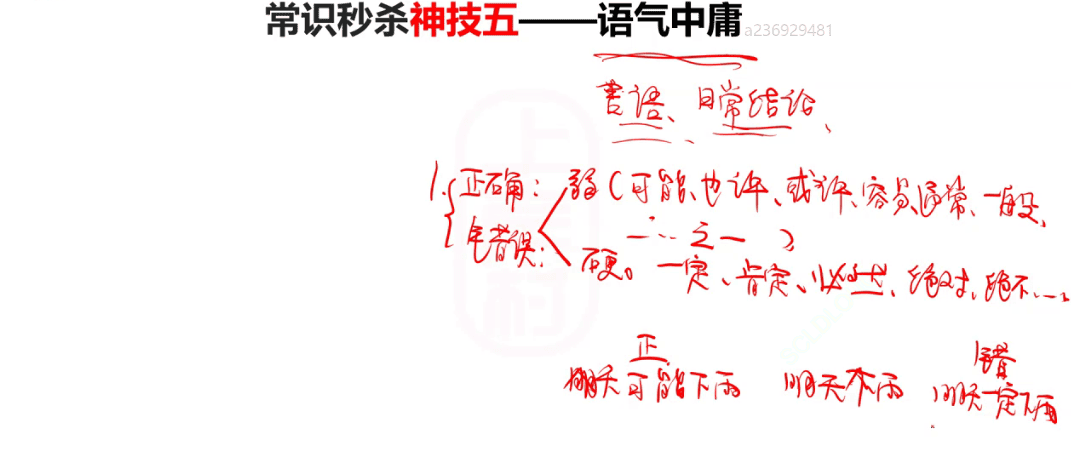 常识秒杀神技五——语气中庸
a236929481
言语、日常结论、
1. 正确： 弱（可能、也许、或许、容易、通常、一般、
…之一）
错误： 硬。一定、肯定、必然、绝对、绝不…
正 错
明天可能下雨 明天下雨 明天一定下雨